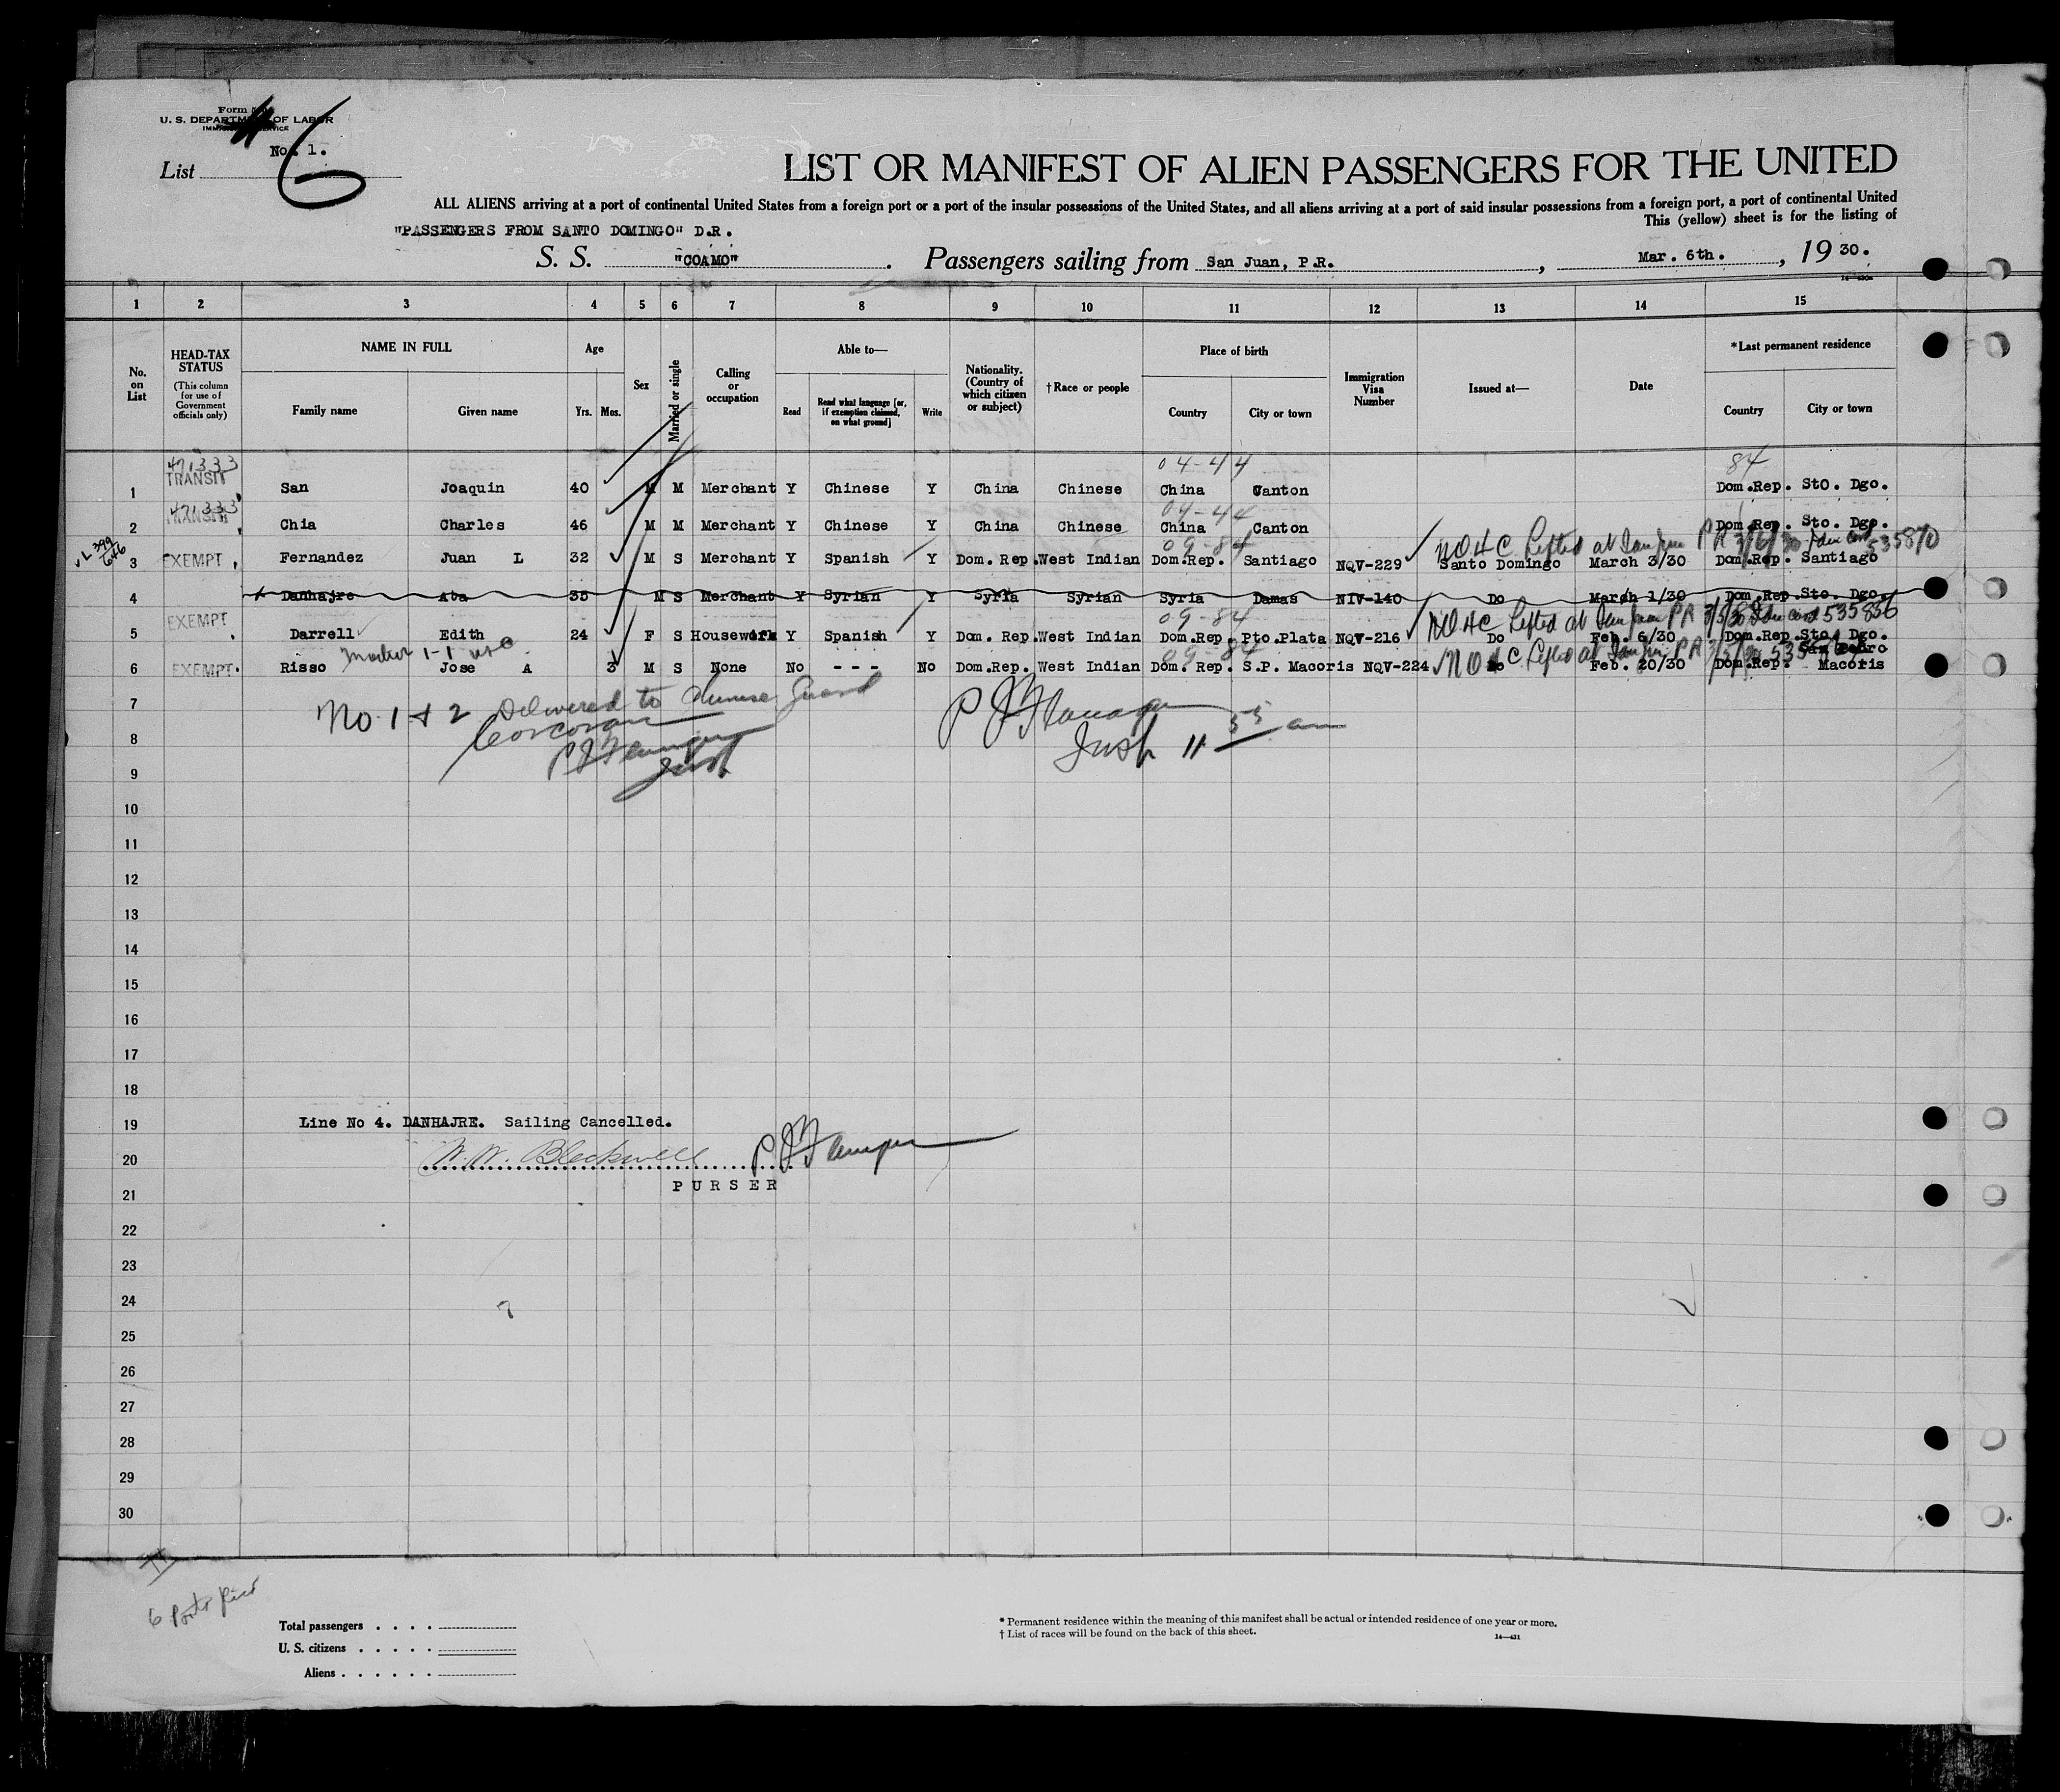 Form 500
U. S. DEPARTMENT OF LABOR
IMMIGRATION SERVICE
List No. 1.
6
LIST OR MANIFEST OF ALIEN PASSENGERS FOR THE UNITED
ALL ALIENS arriving at a port of continental United States from a foreign port or a port of the insular possessions of the United States, and all aliens arriving at a port of said insular possessions from a foreign port, a port of continental United
This (yellow) sheet is for the listing of
"PASSENGERS FROM SANTO DOMINGO" D.R.
S. S. "COAMO". Passengers sailing from San Juan, P.R., Mar. 6th., 19 30.
1 2 3 4 5 6 7 8 9 10 11 12 13 14 15
No. on List
HEAD-TAX STATUS (This column for use of Government officials only)
NAME IN FULL
Family name Given name
Age
Yrs. Mos.
Sex
Married or single
Calling or occupation
Able to—
Read Read what language [or, if exemption claimed, on what ground] Write
Nationality. (Country of which citizen or subject)
† Race or people
Place of birth
Country City or town
Immigration Visa Number
Issued at—
Date
* Last permanent residence
Country City or town
471333 04-44 84
1 TRANSIT San Joaquin 40 M M Merchant Y Chinese Y China Chinese China Canton Dom.Rep. Sto. Dgo.
471333 04-44
2 TRANSIT Chia Charles 46 M M Merchant Y Chinese Y China Chinese China Canton Dom.Rep. Sto. Dgo.
09-84 NO HC Lifted at San Juan PR 3/6/30 535870
3 EXEMPT Fernandez Juan L 32 M S Merchant Y Spanish Y Dom. Rep. West Indian Dom.Rep. Santiago NQV-229 Santo Domingo March 3/30 Dom.Rep. Santiago
4 Danhajre Ata 35 M S Merchant Y Syrian Y Syria Syrian Syria Damas NIV-140 Do March 1/30 Dom.Rep. Sto. Dgo.
09-84 NO HC Lifted at San Juan PR 535836
5 EXEMPT Darrell Edith 24 F S Housework Y Spanish Y Dom. Rep. West Indian Dom.Rep. Pto.Plata NQV-216 Do Feb. 6/30 Dom.Rep. Sto. Dgo.
09-84 NO HC Lifted at San Juan PR San Pedro
6 EXEMPT Risso Jose A 3 M S None No - - - No Dom.Rep. West Indian Dom. Rep. S.P. Macoris NQV-224 Do Feb. 20/30 Dom.Rep. Macoris
7
No 1 + 2 Delivered to Chinese Guard
Corcoran
P J Flanagan
Insp
P J Flanagan
Insp 11 55 am
8
9
10
11
12
13
14
15
16
17
18
19 Line No 4. DANHAJRE. Sailing Cancelled.
20 W. W. Blackwell P J Flanagan
PURSER
21
22
23
24
25
26
27
28
29
30
6 Porto Rico
Total passengers
U. S. citizens
Aliens
* Permanent residence within the meaning of this manifest shall be actual or intended residence of one year or more.
† List of races will be found on the back of this sheet.